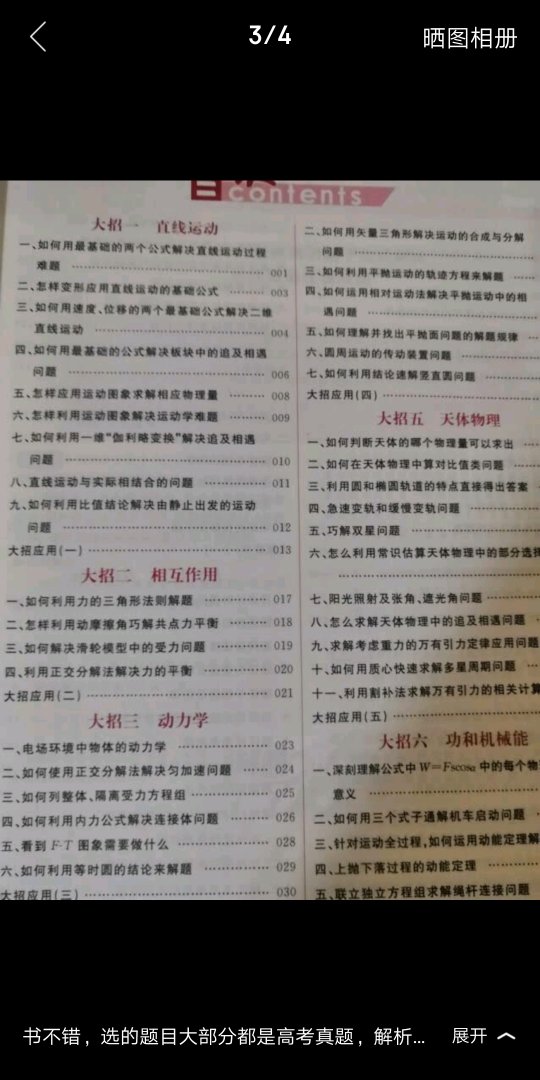 3/4
晒图相册
contents
大招一 直线运动
一、如何用最基础的两个公式解决直线运动过程
难题 001
二、怎样变形应用直线运动的基础公式 003
三、如何用速度、位移的两个最基础公式解决二维
直线运动 004
四、如何用最基础的公式解决板块中的追及相遇
问题 006
五、怎样应用运动图象求解相应物理量 008
六、怎样利用运动图象解决运动学难题 009
七、如何利用一维“伽利略变换”解决追及相遇
问题 010
八、直线运动与实际相结合的问题 011
九、如何利用比值结论解决由静止出发的运动
问题 012
大招应用(一) 013
大招二 相互作用
一、如何利用力的三角形法则解题 017
二、怎样利用动摩擦角巧解共点力平衡 018
三、如何解决滑轮模型中的受力问题 019
四、利用正交分解法解决力的平衡 020
大招应用(二) 021
大招三 动力学
一、电场环境中物体的动力学 023
二、如何使用正交分解法解决匀加速问题 024
三、如何列整体、隔离受力方程组 025
四、如何利用内力公式解决连接体问题 026
五、看到 F-T 图象需要做什么 028
六、如何利用等时圆的结论来解题 029
大招应用(三) 030
二、如何用矢量三角形解决运动的合成与分解
问题
三、如何利用平抛运动的轨迹方程来解题
四、如何运用相对运动法解决平抛运动中的相
遇问题
五、如何理解并找出平抛面问题的解题规律
六、圆周运动的传动装置问题
七、如何利用结论速解竖直圆问题
大招应用(四)
大招五 天体物理
一、如何判断天体的哪个物理量可以求出
二、如何在天体物理中算对比值类问题
三、利用圆和椭圆轨道的特点直接得出答案
四、急速变轨和缓慢变轨问题
五、巧解双星问题
六、怎么利用常识估算天体物理中的部分选择
七、阳光照射及张角、遮光角问题
八、怎么求解天体物理中的追及相遇问题
九、求解考虑重力的万有引力定律应用问题
十、如何用质心快速求解多星周期问题
十一、利用割补法求解万有引力的相关计算
大招应用(五)
大招六 功和机械能
一、深刻理解公式中 W=Fscosα 中的每个物
意义
二、如何用三个式子通解机车启动问题
三、针对运动全过程,如何运用动能定理解
四、上抛下落过程的动能定理
五、联立独立方程组求解绳杆连接问题
书不错，选的题目大部分都是高考真题，解析...
展开